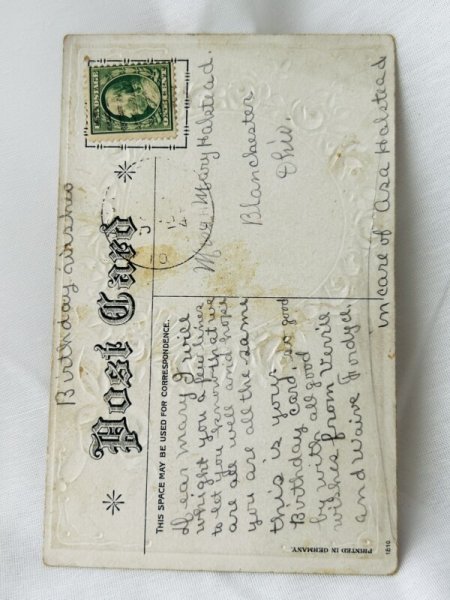 Birthday wishes
Post Card
THIS SPACE MAY BE USED FOR CORRESPONDENCE.
Dear Mary I will
wright you a few lines
to let you know that we
are all well and hope
you are all the same
this is your
Birthday Card so good
by with all good
wishes from Verie
and Waive Fordyce
U.S. POSTAGE
ONE CENT
Miss Mary Halstead.
Blanchester
Ohio.
in care of Asa Halstead
PRINTED IN GERMANY.
1810